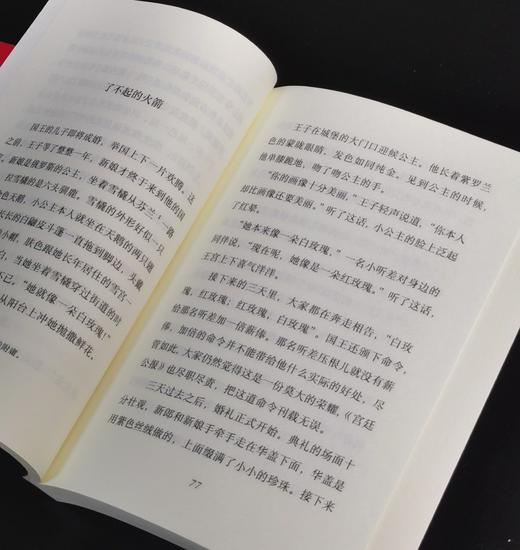 了不起的火箭
国王的儿子即将成婚，举国上下一片欢腾。这
之前，王子等了整整一年，新娘才终于来到他的国
新娘是俄罗斯的公主，坐着雪橇从芬兰一路
拉雪橇的是六头驯鹿。雪橇的外形好似一只
色天鹅，小公主本人就坐在天鹅的两只翅
长长的白鼬皮斗篷一直拖到脚边，头戴
小帽，肤色跟她长年居住的雪宫一
白，当她坐着雪橇穿过街道的时
不已，“她就像一朵白玫瑰！”
从阳台上冲她抛撒鲜花。
王子在城堡的大门口迎候公主。他长着紫罗兰
色的蒙眬眼睛，发色如同纯金。见到公主的时候，
他单膝跪地，吻了吻公主的手。
“你的画像十分美丽，”王子轻声说道，“你本人
却比画像还要美丽。”听了这话，小公主的脸上泛起
了红晕。
“她本来像一朵白玫瑰，”一名小听差对身边的
同伴说，“现在呢，她像是一朵红玫瑰。”听了这话，
王宫上下喜气洋洋。
接下来的三天里，大家都在奔走相告，“白玫
瑰，红玫瑰；红玫瑰，白玫瑰”。国王还颁下命令，
给那名听差加一倍薪俸。那名听差压根儿就没有薪
俸，加倍的命令并不能带给他什么实际的好处，尽
管如此，大家仍然觉得这是一份莫大的荣耀，《宫廷
公报》也尽职尽责，把这道命令刊载无误。
三天过去之后，婚礼正式开始。典礼的场面十
分壮观，新郎和新娘手牵手走在华盖下面，华盖是
用紫色丝绒做的，上面缀满了小小的珍珠。接下来
77